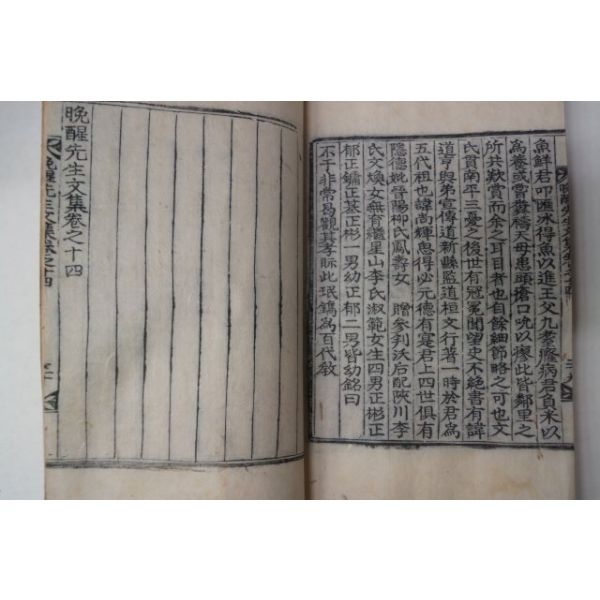 魚鮮君叩匯氷得魚以進王父九耋癃病君負米以
為養或嘗糞禱天母患頭瘡口吮以瘳此皆鄰里之
所共歎賞而余之耳目者也自餘細節略之可也文
氏貫南平三憂之後世有冠冕聞望史不絶書有諱
道亨與弟宣傳道新縣監道桓文行著一時於君為
五代祖也諱尚輝思得必元德有寔君上四世俱有
隱德妣晉陽柳氏鳳壽女 贈參判沃后配陜川李
氏文煥女無育繼星山李氏淑範女生四男正彬正
郁正鏞正基正彬一男幼正郁二男皆幼銘曰
不于非常易觀其孝眎此珉鐫為百代教
晩醒先生文集卷之十四
晩醒先生文集卷之十四